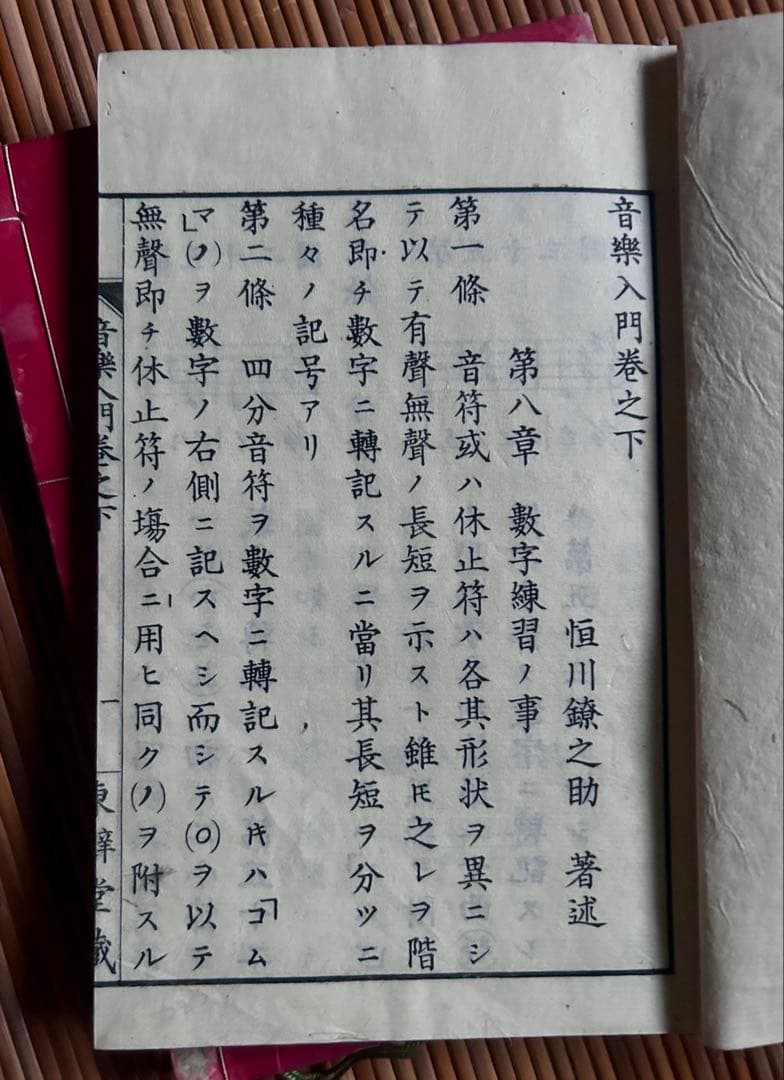 音樂入門卷之下
恒川鐐之助 著述
第八章 數字練習ノ事
第一條 音符或ハ休止符ハ各其形状ヲ異ニシ
テ以テ有聲無聲ノ長短ヲ示スト雖𪜈之レヲ階
名即チ數字ニ轉記スルニ當リ其長短ヲ分ツニ
種々ノ記号アリ
第二條 四分音符ヲ數字ニ轉記スル𪜈ハ「コム
マ」(ノ)ヲ數字ノ右側ニ記スヘシ而シテ(O)ヲ以テ
無聲即チ休止符ノ塲合ニ用ヒ同ク(ノ)ヲ附スル
音樂入門卷之下
一
東壁堂藏